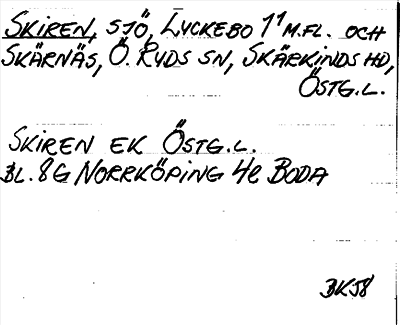 SKIREN, SJÖ, LYCKEBO 1¹ M.FL. OCH
SKÄRNÄS, Ö. RYDS SN, SKÄRKINDS HD,
ÖSTG.L.
SKIREN EK ÖSTG.L.
BL. 8G NORRKÖPING 4e BODA
BK58